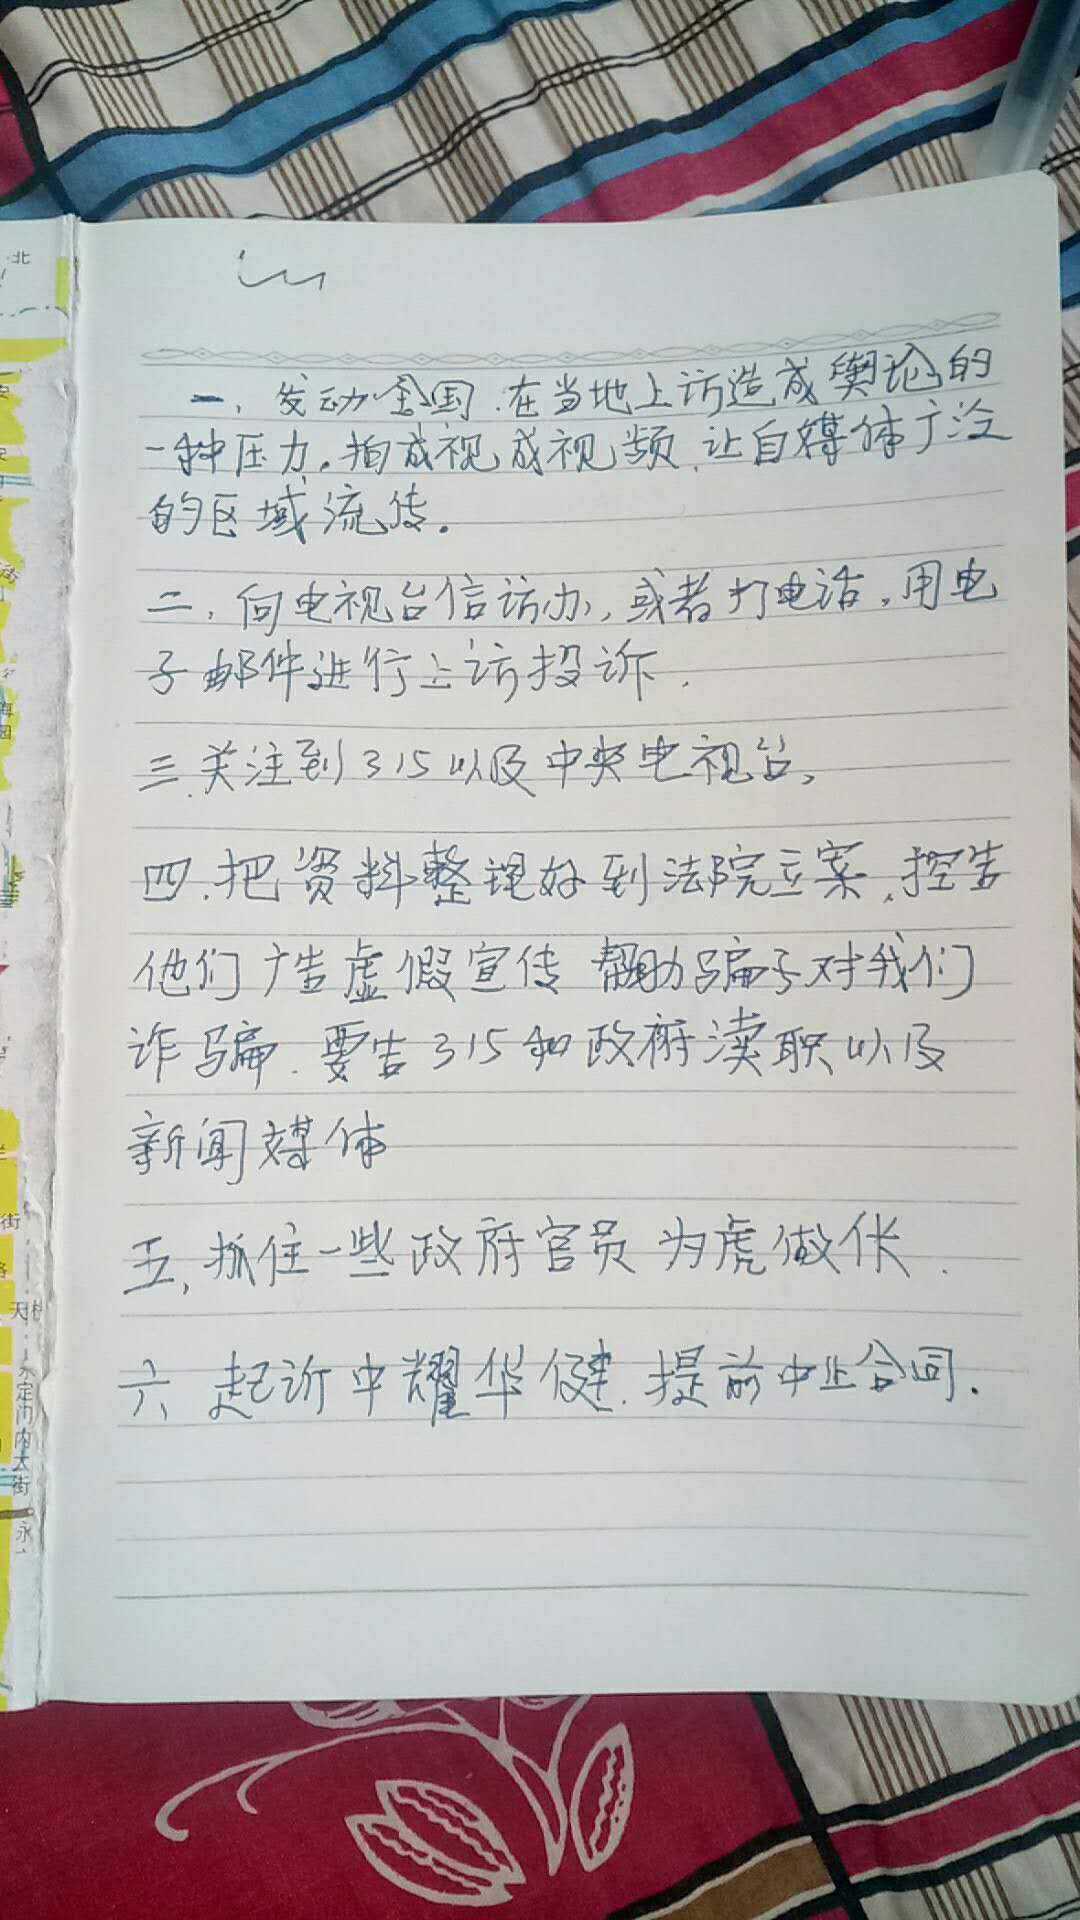 一，发动全国，在当地上访造成舆论的
一种压力。拍成视成视频，让自媒体广泛
的区域流传。
二，向电视台信访办，或者打电话，用电
子邮件进行上访投诉，
三，关注到315以及中央电视台，
四，把资料整理好到法院立案，控告
他们广告虚假宣传 帮助骗子对我们
诈骗，要告315和政府渎职以及
新闻媒体
五，抓住一些政府官员 为虎做伥，
六、起诉中耀华健，提前中止合同．
北
街
街
永定门内大街
永